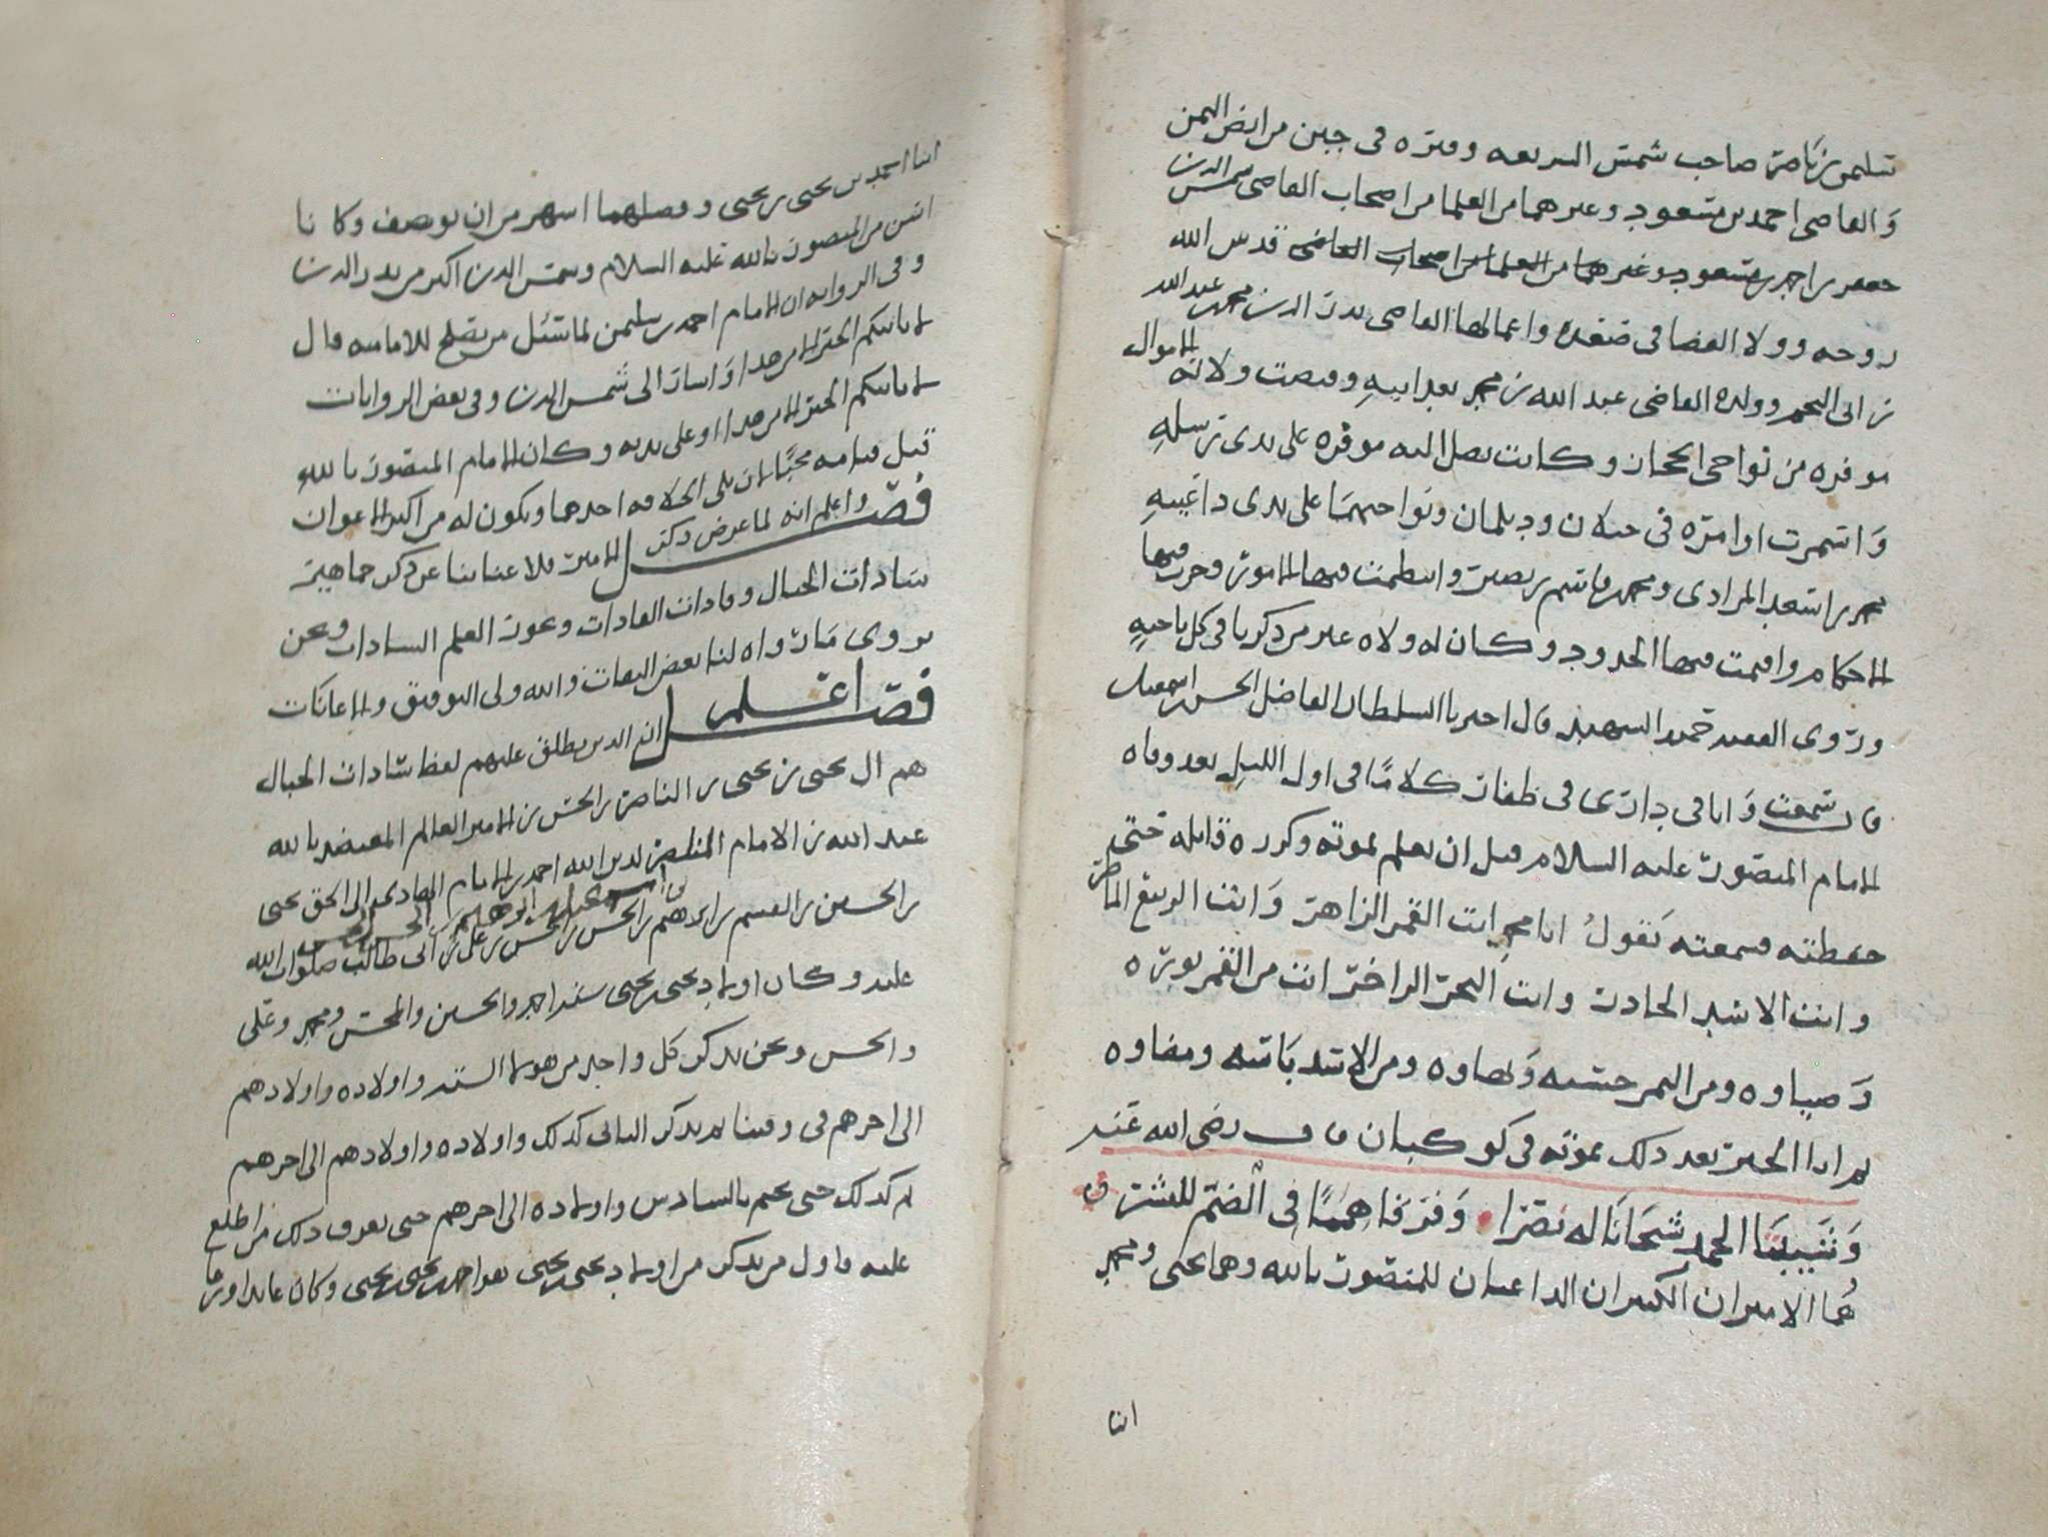 سليمن بن ناصر صاحب شمس الشريعه وقبره في جبن من ارض اليمن
والقاضي احمد بن مسعود وغيرهما من العلما من اصحاب القاضي شمس الدين
جعفر بن احمد بن مسعود وغيرهما من العلما من اصحاب القاضي قدس الله
روحه وولا القضا في صعده واعمالها القاضي بدر الدين محمد بن عبد الله
بن ابي النجم وولده القاضي عبد الله بن محمد بعد ابيه وقبضت ولاته الاموال
موفره من نواحي الحجاز وكانت تصل اليه موفره على يدي رسله
واستمرت اوامره في جيلان وديلمان ونواحيهما على يدي داعييه
محمد بن اسعد المرادي ومحمد بن قاسم بن نصير وانتظمت فيها الامور وجرت فيها
الاحكام واقيمت فيها الحدود وكان له ولاه غير من ذكرنا في كل ناحيه
وروى الفقيه حميد الشهيد قال اخبرنا السلطان الفاضل الحسن بن اسمعيل
قال سمعت وانا في داري في ظفار كلاما في اول الليل بعد وفاه
الامام المنصور عليه السلام قبل ان نعلم بموته وكرره قايله حتى
حفظته فسمعته يقول ابا محمد انت القمر الزاهر وانت الربيع الماطر
وانت الاسد الخادر وانت البحر الزاخر انت من القمر نوره
وضياوه ومن البحر وسخاوه ومن الاسد باسه ومضاوه
ثم اتانا الخبر بعد ذلك بموته في كوكبان قال رضي الله عنه
وشيبتا الحمد شحانا له نصرا وفرقا هممًا في الضم للنشر
هما الاميران الكبيران الداعيان للمنصور بالله وهما يحيى ومحمد
ابنا
ابنا احمد بن يحيى بن يحيى وفضلهما اشهر من ان يوصف وكانا
اسن من المنصور بالله عليه السلام وشمس الدين اكبر من بدر الدين
وفي الروايه ان الامام احمد بن سليمن لما سئل من يصلح للامامه قال
لا ياتيكم الخير الا من هذا واشار الى شمس الدين وفي بعض الروايات
لا ياتيكم الخير الا من هذا او على يديه وكان الامام المنصور بالله
قبل قيامه محبًا لان يلي الخلافه احدهما ويكون له من اكبر الاعوان
فصل واعلم انه لما عرض ذكر الامير فلا عنا بنا عن ذكر جماهير
سادات الجبال وقادات القادات وبحور العلم السادات ونحن
نروي ما رواه لنا بعض الثقات والله ولي التوفيق والاعانات
فصل اعلم ان الذين يطلق عليهم لفظ سادات الجبال
هم ال يحيى بن يحيى بن الناصر بن الحسن بن الامير العالم المعتضد بالله
عبد الله بن الامام المنتصر لدين الله احمد بن الامام الهادي الى الحق يحيى
بن الحسين بن القسم بن ابراهيم بن الحسن بن الحسن بن علي بن ابي طالب صلوات الله
بن اسمعيل بن ابراهيم بن الحسن بن الحسن
عليه وكان اولاد يحيى بن يحيى سته احمد والحسين والمحسن ومحمد وعلي
والحسن ونحن نذكر كل واحد من هولا السته واولاده واولادهم
الى اخرهم في وقتنا ثم نذكر الثاني كذلك واولاده واولادهم الى اخرهم
ثم كذلك حتى نختم بالسادس واولاده الى اخرهم حتى يعرف ذلك من اطلع
عليه فاول من نذكر من اولاد يحيى بن يحيى هو احمد بن يحيى بن يحيى وكان عابدا ورعا